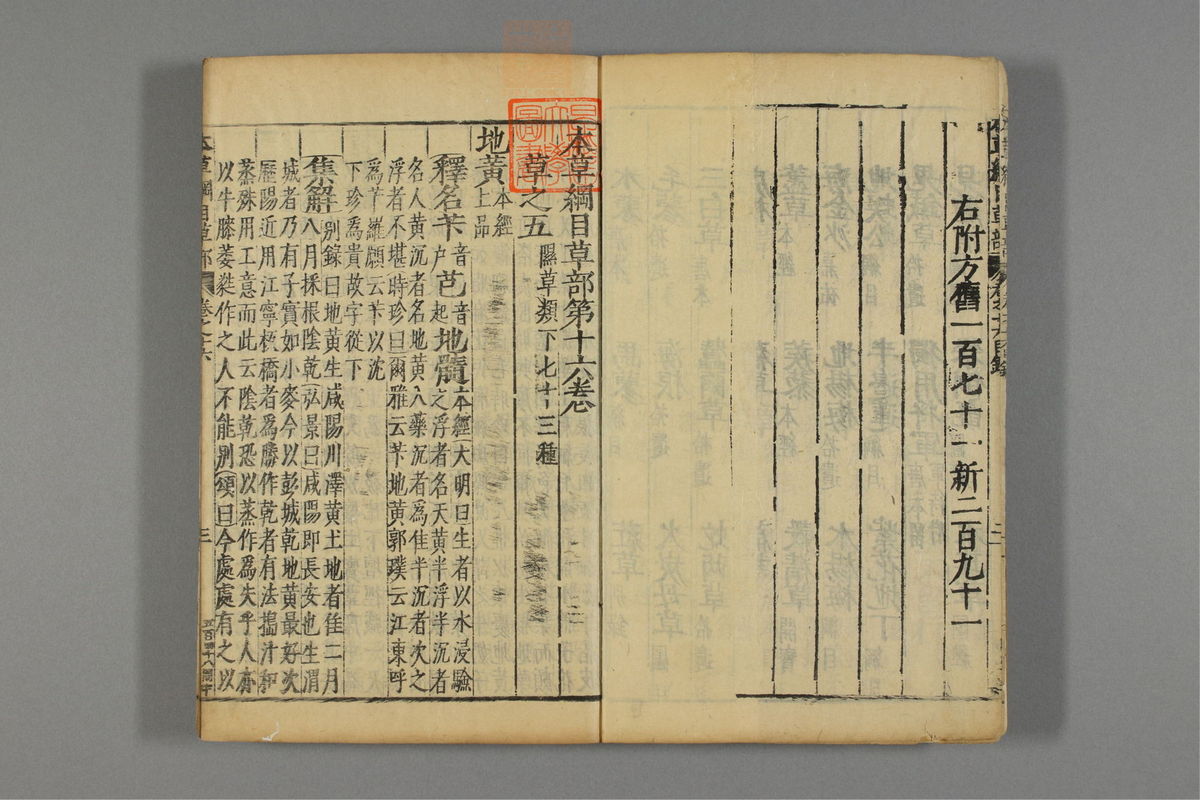 右附方舊一百七十一 新二百九十一
本草綱目草部第十六卷
草之五 隰草類下七十三種
地黃 本經上品
釋名 芐音戶 芑音起 地髓本經 大明曰生者以水浸驗
之浮者名天黃半浮半沉者
名人黃沉者名地黃入藥沉者為佳半沉者次之
浮者不堪時珍曰爾雅云芐地黃郭璞云江東呼
為芐羅願云芐以沈
下珍為貴故字從下
集解 別錄曰地黃生咸陽川澤黃土地者佳二月
八月採根陰乾弘景曰咸陽即長安也生渭
城者乃有子實如小麥今以彭城乾地黃最好次
歷陽近用江寧板橋者為勝作乾者有法擣汁和
蒸殊用工意而此云陰乾恐以蒸作為失乎人亦
以牛膝萎蕤作之人不能別頌曰今處處有之以